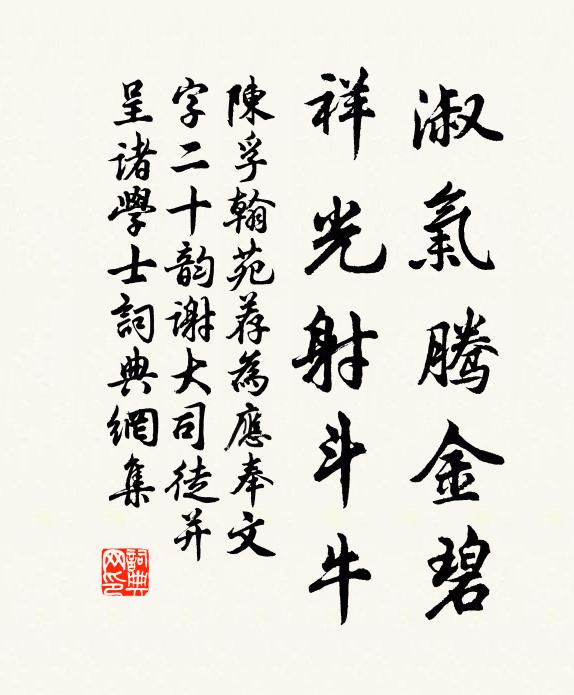 淑氣騰金碧
祥光射斗牛
陳孚翰苑荐為應奉文
字二十韵謝大司徒并
呈诸學士詞典網集
詞典网印